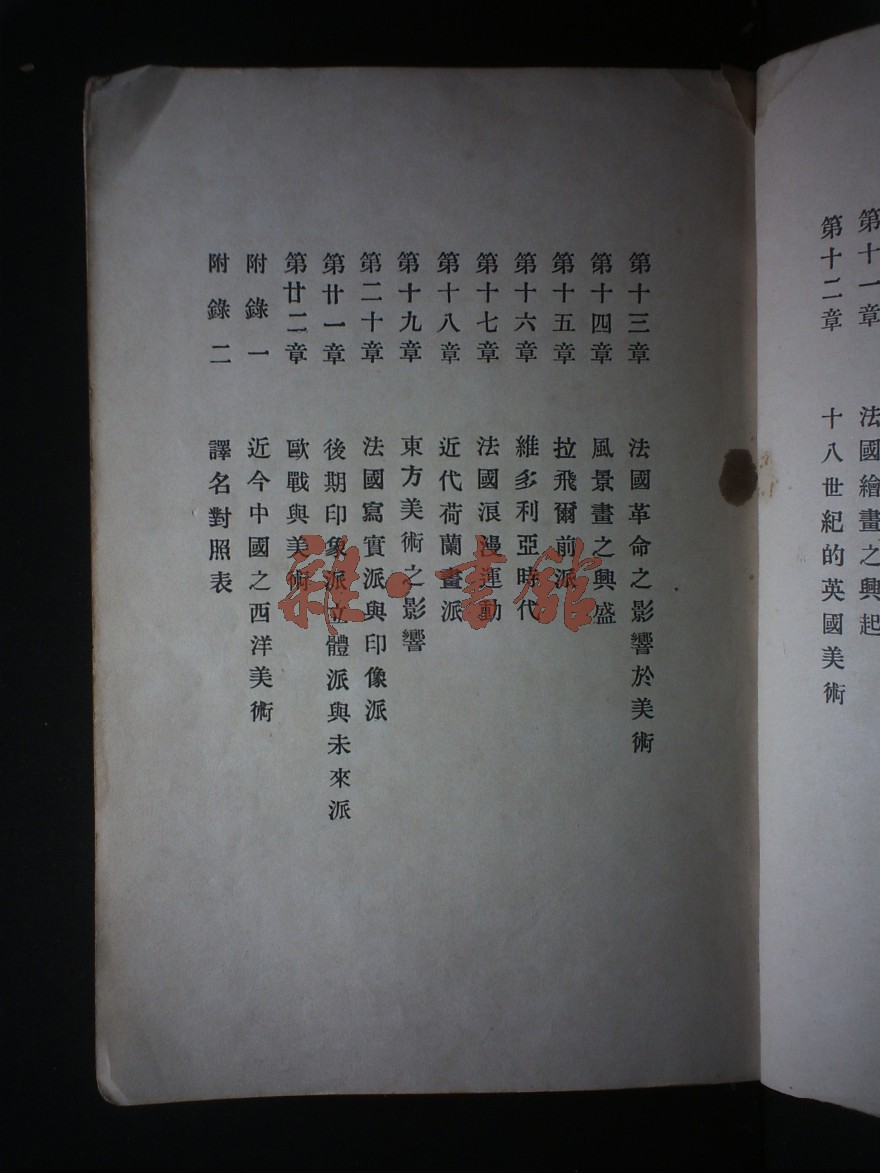 第十一章　法國繪畫之興起
第十二章　十八世紀的英國美術
第十三章　法國革命之影響於美術
第十四章　風景畫之興盛
第十五章　拉飛爾前派
第十六章　維多利亞時代
第十七章　法國浪漫運動
第十八章　近代荷蘭畫派
第十九章　東方美術之影響
第二十章　法國寫實派與印像派
第廿一章　後期印象派立體派與未來派
第廿二章　歐戰與美術
附錄一　近今中國之西洋美術
附錄二　譯名對照表
雜·書館